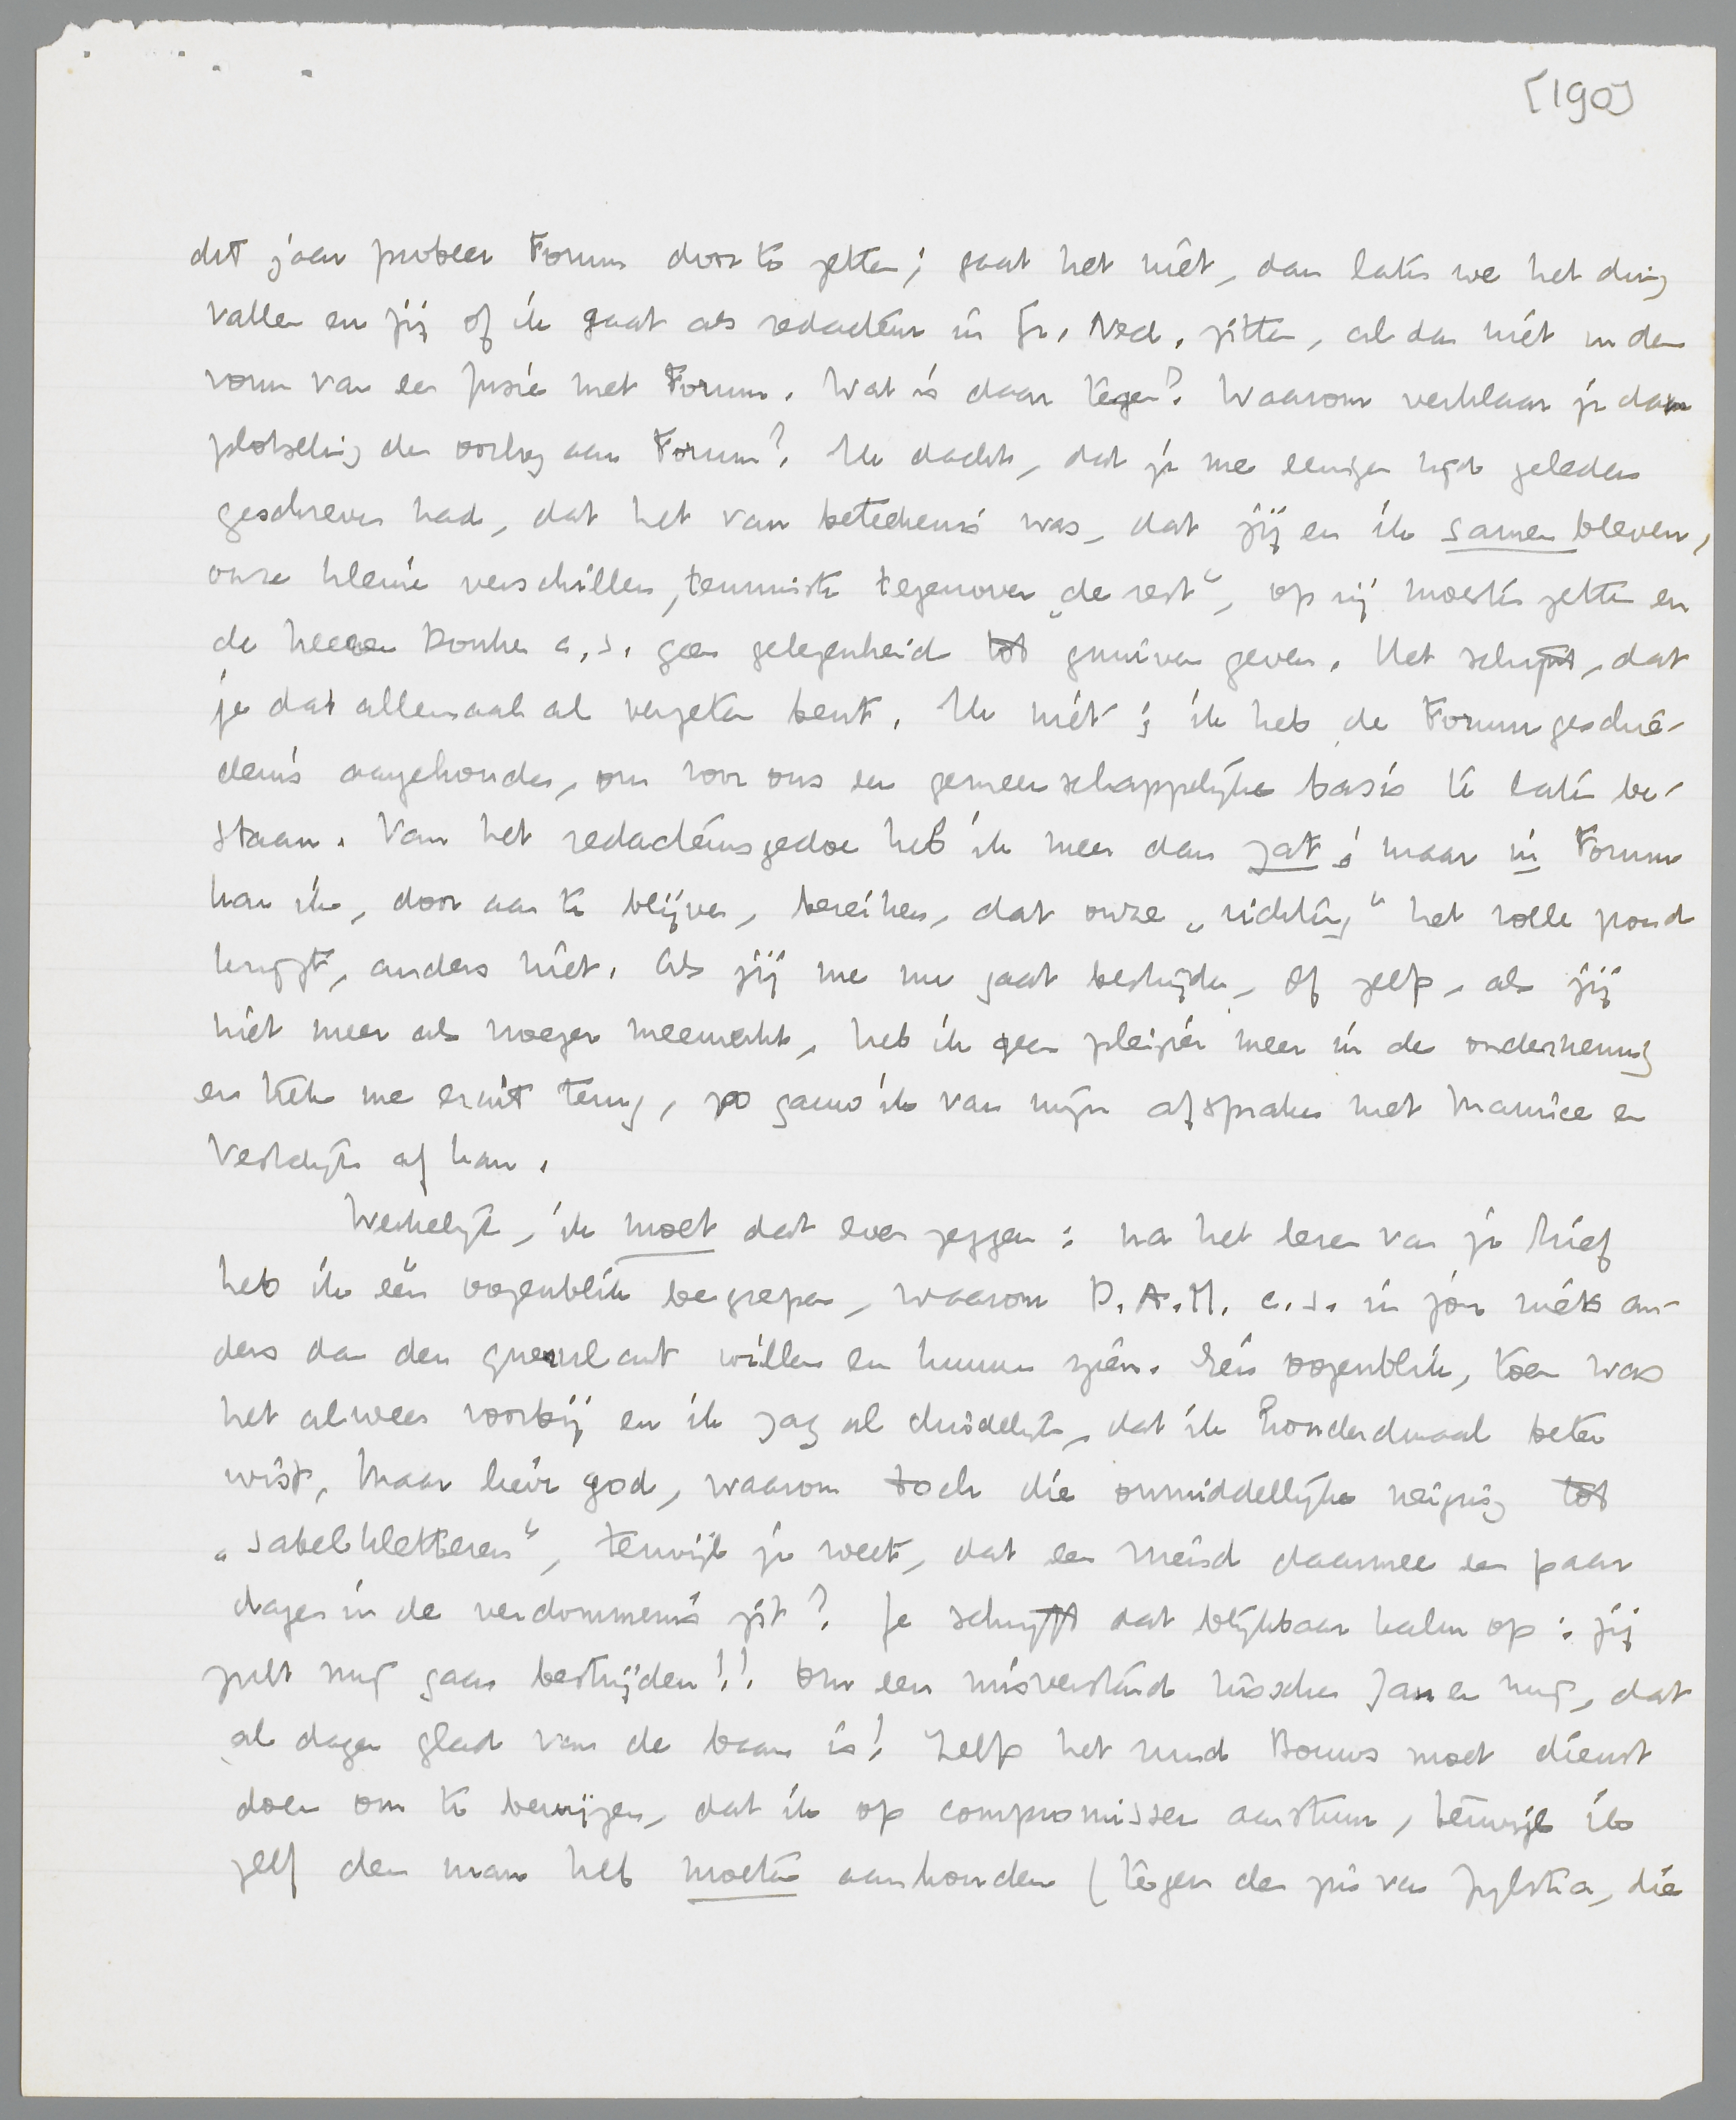 [190]
dit jaar probeer Forum door te zetten; gaat het niet, dan laten we het ding
vallen en jij of ik gaat als redacteur in Gr. Ned. zitten, al dan niet in den
vorm van een fusie met Forum. Wat is daar tegen? Waarom verklaar je dan
plotseling den oorlog aan Forum? Ik dacht, dat je me eenigen tijd geleden
geschreven had, dat het van beteekenis was, dat jij en ik samen bleven,
onze kleine verschillen, tenminste tegenover „de rest”, op zij moesten zetten en
de heeren Donker c.s. geen gelegenheid tot gnuiven geven. Het schijnt, dat
je dat allemaal al vergeten bent. Ik niet; ik heb de Forumgeschie-
denis aangehouden, om voor ons een gemeenschappelijke basis te laten be-
staan. Van het redacteursgedoe heb ik meer dan zat; maar in Forum
kan ik, door aan te blijven, bereiken, dat onze „richting” het volle pond
krijgt, anders niet. Als jij me nu gaat bestrijden, of zelfs, als jij
niet meer als vroeger meewerkt, heb ik geen pleizier meer in de onderneming
en trek me eruit terug, zo gauw ik van mijn afspraken met Maurice en
Vestdijk af kan.
Werkelijk, ik moet dat even zeggen: na het lezen van je brief
heb ik één oogenblik begrepen, waarom D.A.M. c.s. in jou niets an-
ders dan den querulant willen en kunnen zien. Eén oogenblik, toen was
het alweer voorbij en ik zag al duidelijk, dat ik honderdmaal beter
wist. Maar lieve god, waarom toch die onmiddellijke neiging tot
„sabelkletteren”, terwijl je weet, dat een vriend daarmee een paar
dagen in de verdommenis zit? Je schrijft dat blijkbaar kalm op: jij
zult mij gaan bestrijden!! Om een misverstand tusschen Jan en mij, dat
al dagen glad van de baan is! Zelfs het rund Bouws moet dienst
doen om te bewijzen, dat ik op compromissen aanstuur, terwijl ik
zelf den man heb moeten aanhouden (tegen den zin van Zijlstra, die